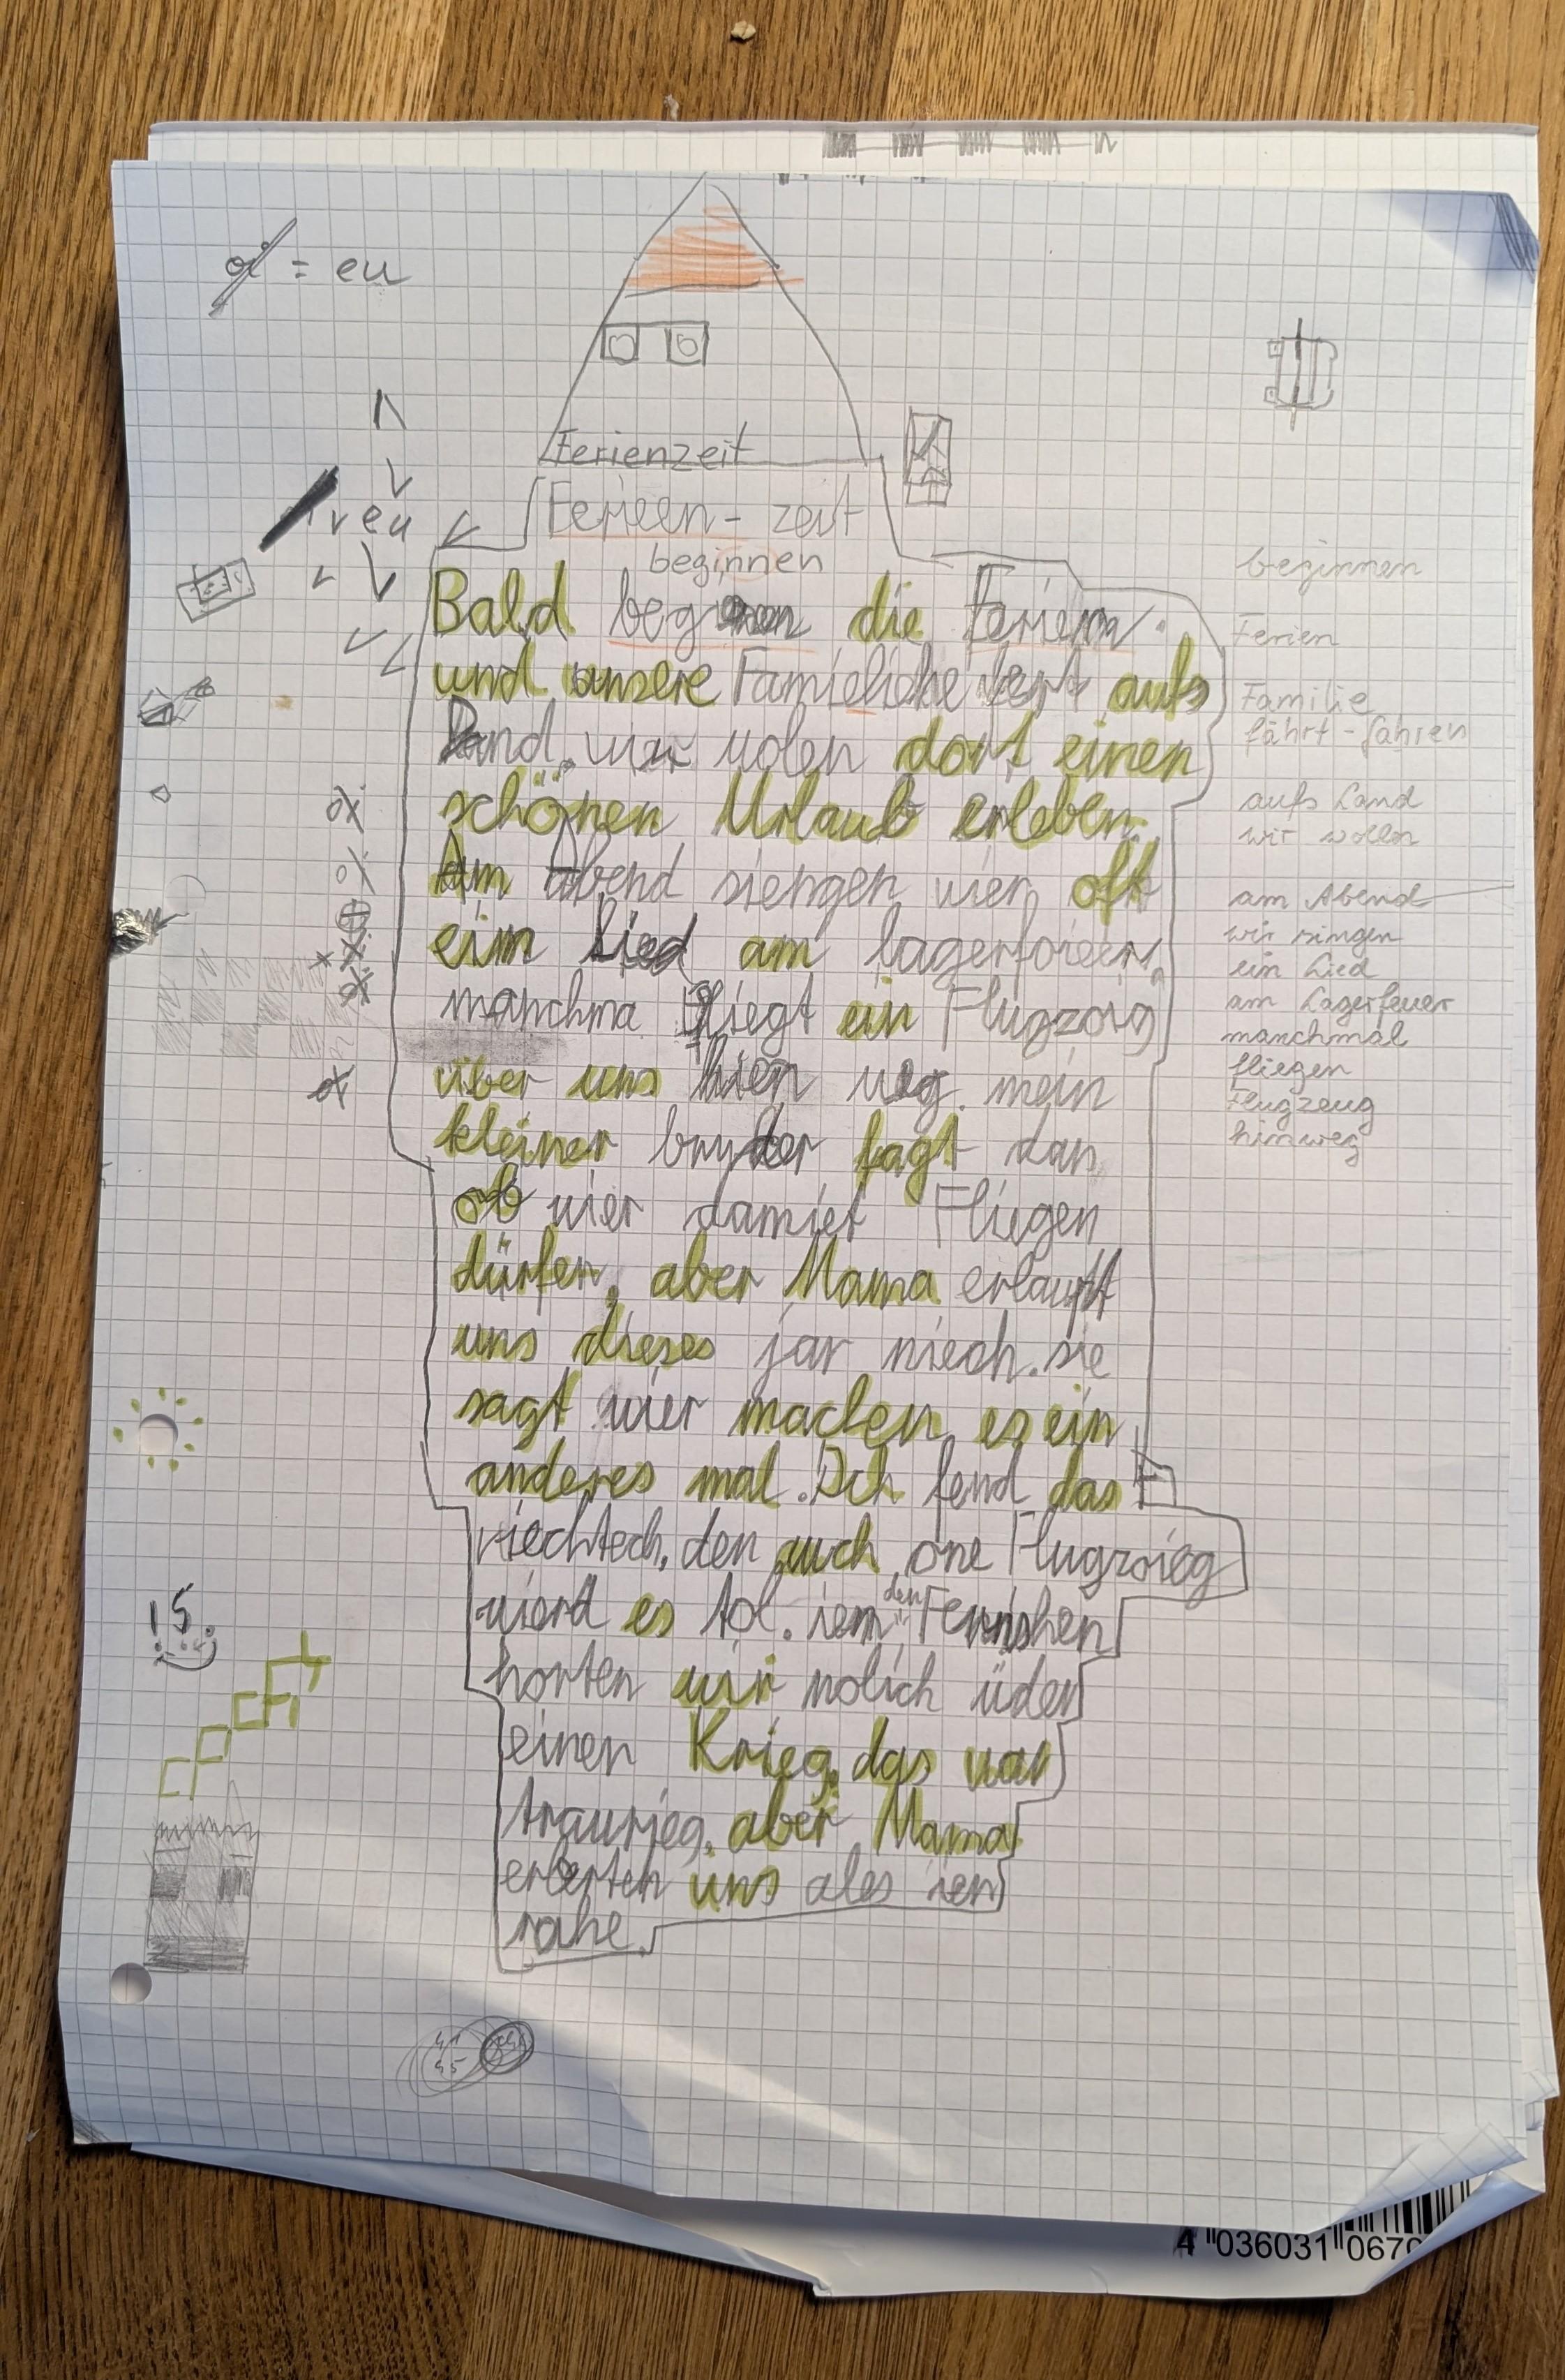 = eu
Ferienzeit
Ferieen - zeit
eu
beginnen
Bald die Ferien
und unsere Familiche fert aufs
Land. wir wolen dort einen
schönen Urlaub erleben.
Am Abend siengen wier oft
ein Lied am lagerfoieer.
manchma fliegt ein Flugzoig
über uns hien weg. mein
kleiner bruder fagt dan
ob wier damiet Fliegen
dürfen, aber Mama erlaupt
uns dieses jar niech. sie
sagt wier machen es ein
anderes mal. Ich fend das
riechtech, den auch one Flugzoieg
wierd es tol. iem den Fernshen
horten wir nolich üder
einen Krieg. das war
traurieg. aber Mama
erlerten uns ales ien
rahe.
beginnen
Ferien
Familie
fährt - fahren
aufs Land
wir wollen
am Abend
wir singen
ein Lied
am Lagerfeuer
manchmal
fliegen
Flugzeug
hinweg
15.
4 036031 0670